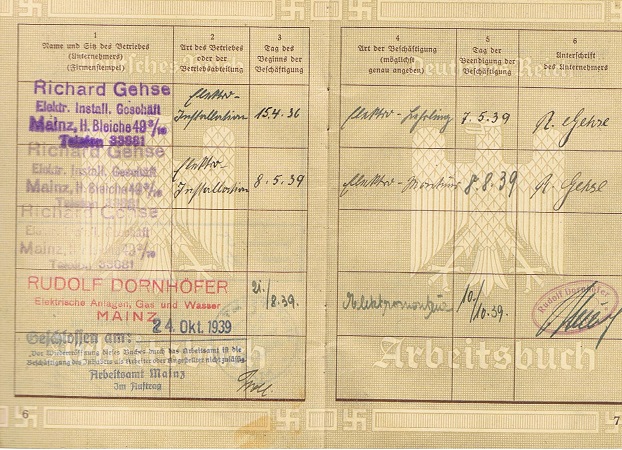 1
Name und Sitz des Betriebes
(Unternehmers)
(Firmenstempel)
2
Art des Betriebes
oder der
Betriebsabteilung
3
Tag des
Beginns der
Beschäftigung
Richard Gehse
Elektr. Install. Geschäft
Mainz, H. Bleiche
Telefon 33081
Elektro-
Installation
15.4.36
Richard Gehse
Elektr. Install. Geschäft
Mainz, H. Bleiche
Telefon 33081
Elektro-
Installation
8.5.39
Richard Gehse
Elektr. Install. Geschäft
Mainz, H. Bleiche
Telefon 33081
RUDOLF DORNHÖFER
Elektrische Anlagen, Gas und Wasser
MAINZ
21./
8.39.
24. Okt. 1939
Geschlossen am:
Arbeitsamt Mainz
Im Auftrag
6
4
Art der Beschäftigung
(möglichst
genau angeben)
5
Tag der
Beendigung der
Beschäftigung
6
Unterschrift
des Unternehmers
Elektro-Lehrling
7.5.39
R. Gehse
Elektro-Monteur
8.8.39
R. Gehse
Elektromonteur
10./
10.39.
Rudolf Dornhöfer
Arbeitsbuch
7